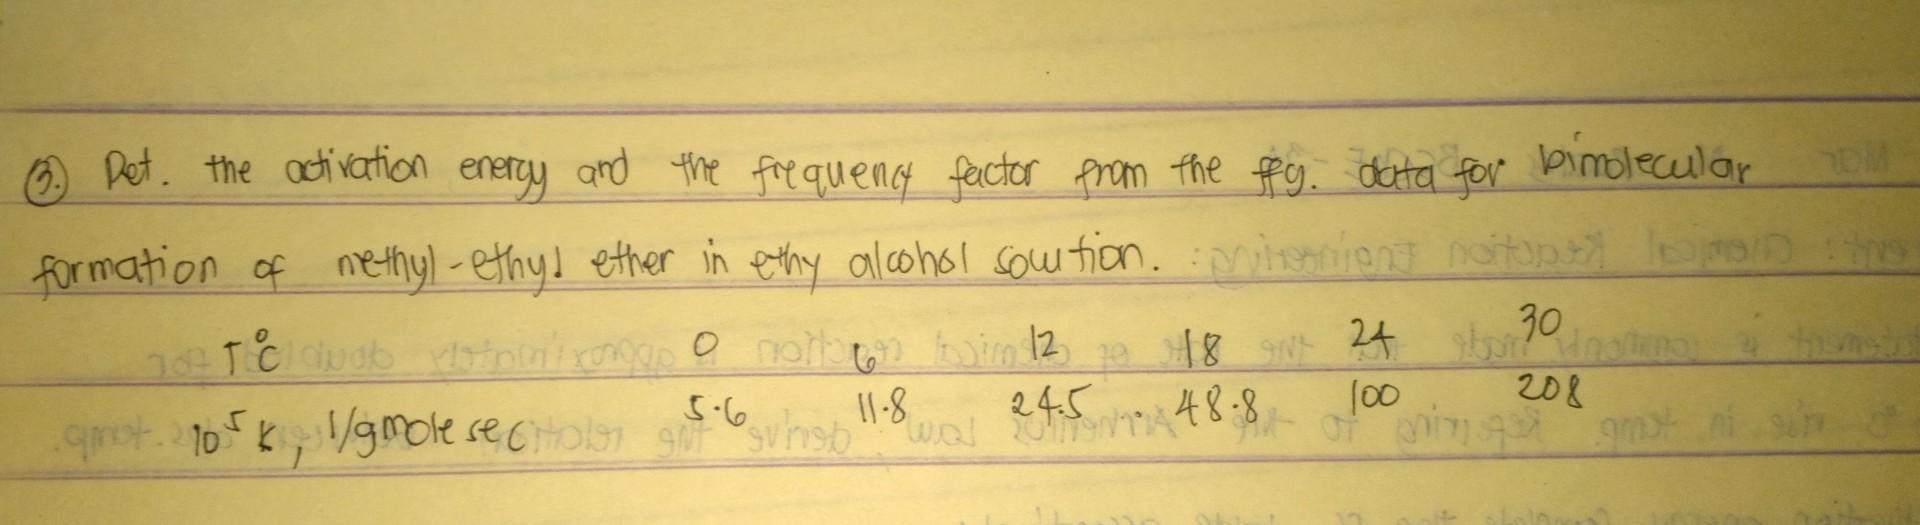 3. Det. the activation energy and the frequency factor from the ffg. data for bimolecular
formation of methyl-ethyl ether in ethy alcohol solution.
T°C 0 6 12 18 24 30
10⁵ k, l/gmole sec 5.6 11.8 24.5 48.8 100 208